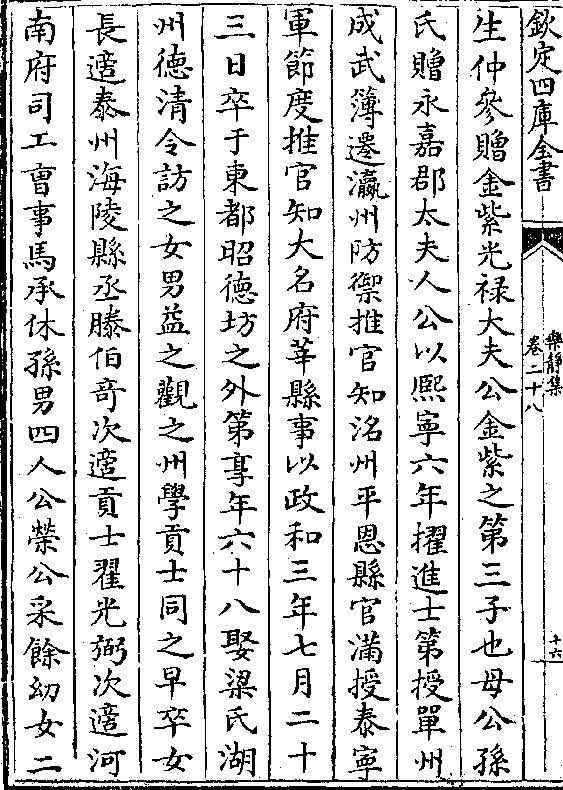 欽定四庫全書
樂靜集
卷二十八
十六
生仲參贈金紫光禄大夫公金紫之第三子也母公孫
氏贈永嘉郡太夫人公以熙寧六年擢進士第授單州
成武簿遷瀛州防禦推官知洺州平恩縣官滿授泰寧
軍節度推官知大名府莘縣事以政和三年七月二十
三日卒于東都昭德坊之外第享年六十八娶梁氏湖
州德清令訪之女男益之觀之州學貢士同之早卒女
長適泰州海陵縣丞滕伯竒次適貢士翟光弼次適河
南府司工曹事馬承休孫男四人公榮公采餘幼女二